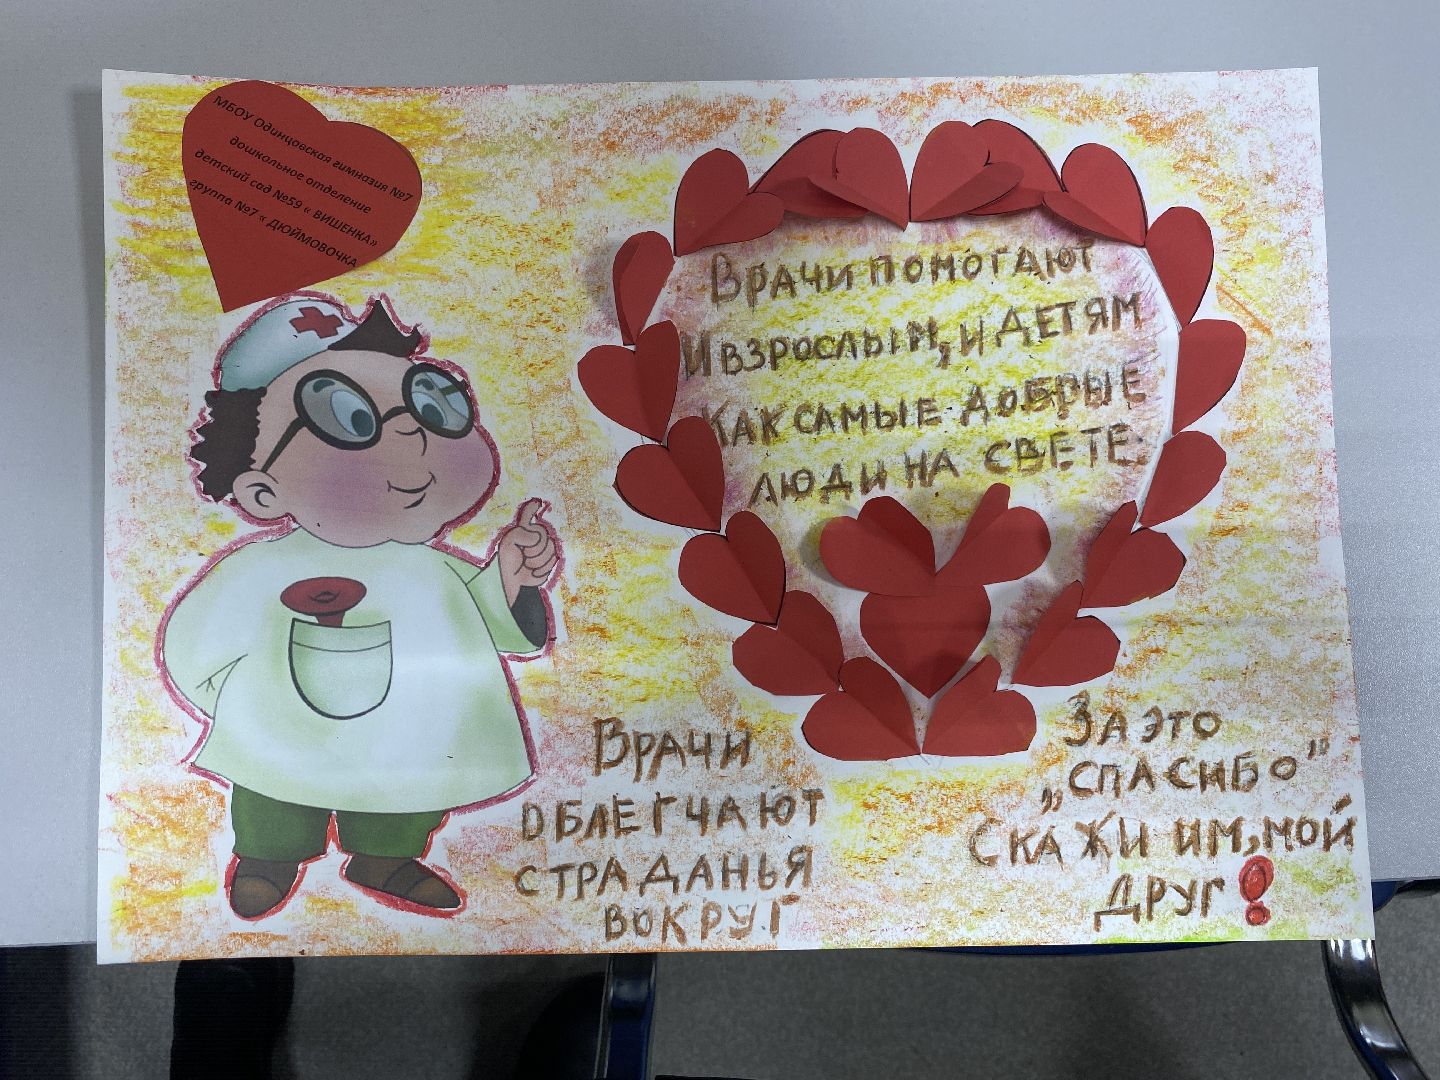 МБОУ Одинцовская гимназия №7
дошкольное отделение
детский сад №59 « ВИШЕНКА»
группа №7 « ДЮЙМОВОЧКА
ВРАЧИ ПОМОГАЮТ
И ВЗРОСЛЫМ, И ДЕТЯМ
КАК САМЫЕ ДОБРЫЕ
ЛЮДИ НА СВЕТЕ.
ВРАЧИ
ОБЛЕГЧАЮТ
СТРАДАНЬЯ
ВОКРУГ
ЗА ЭТО
„СПАСИБО"
СКАЖИ ИМ, МОЙ
ДРУГ!